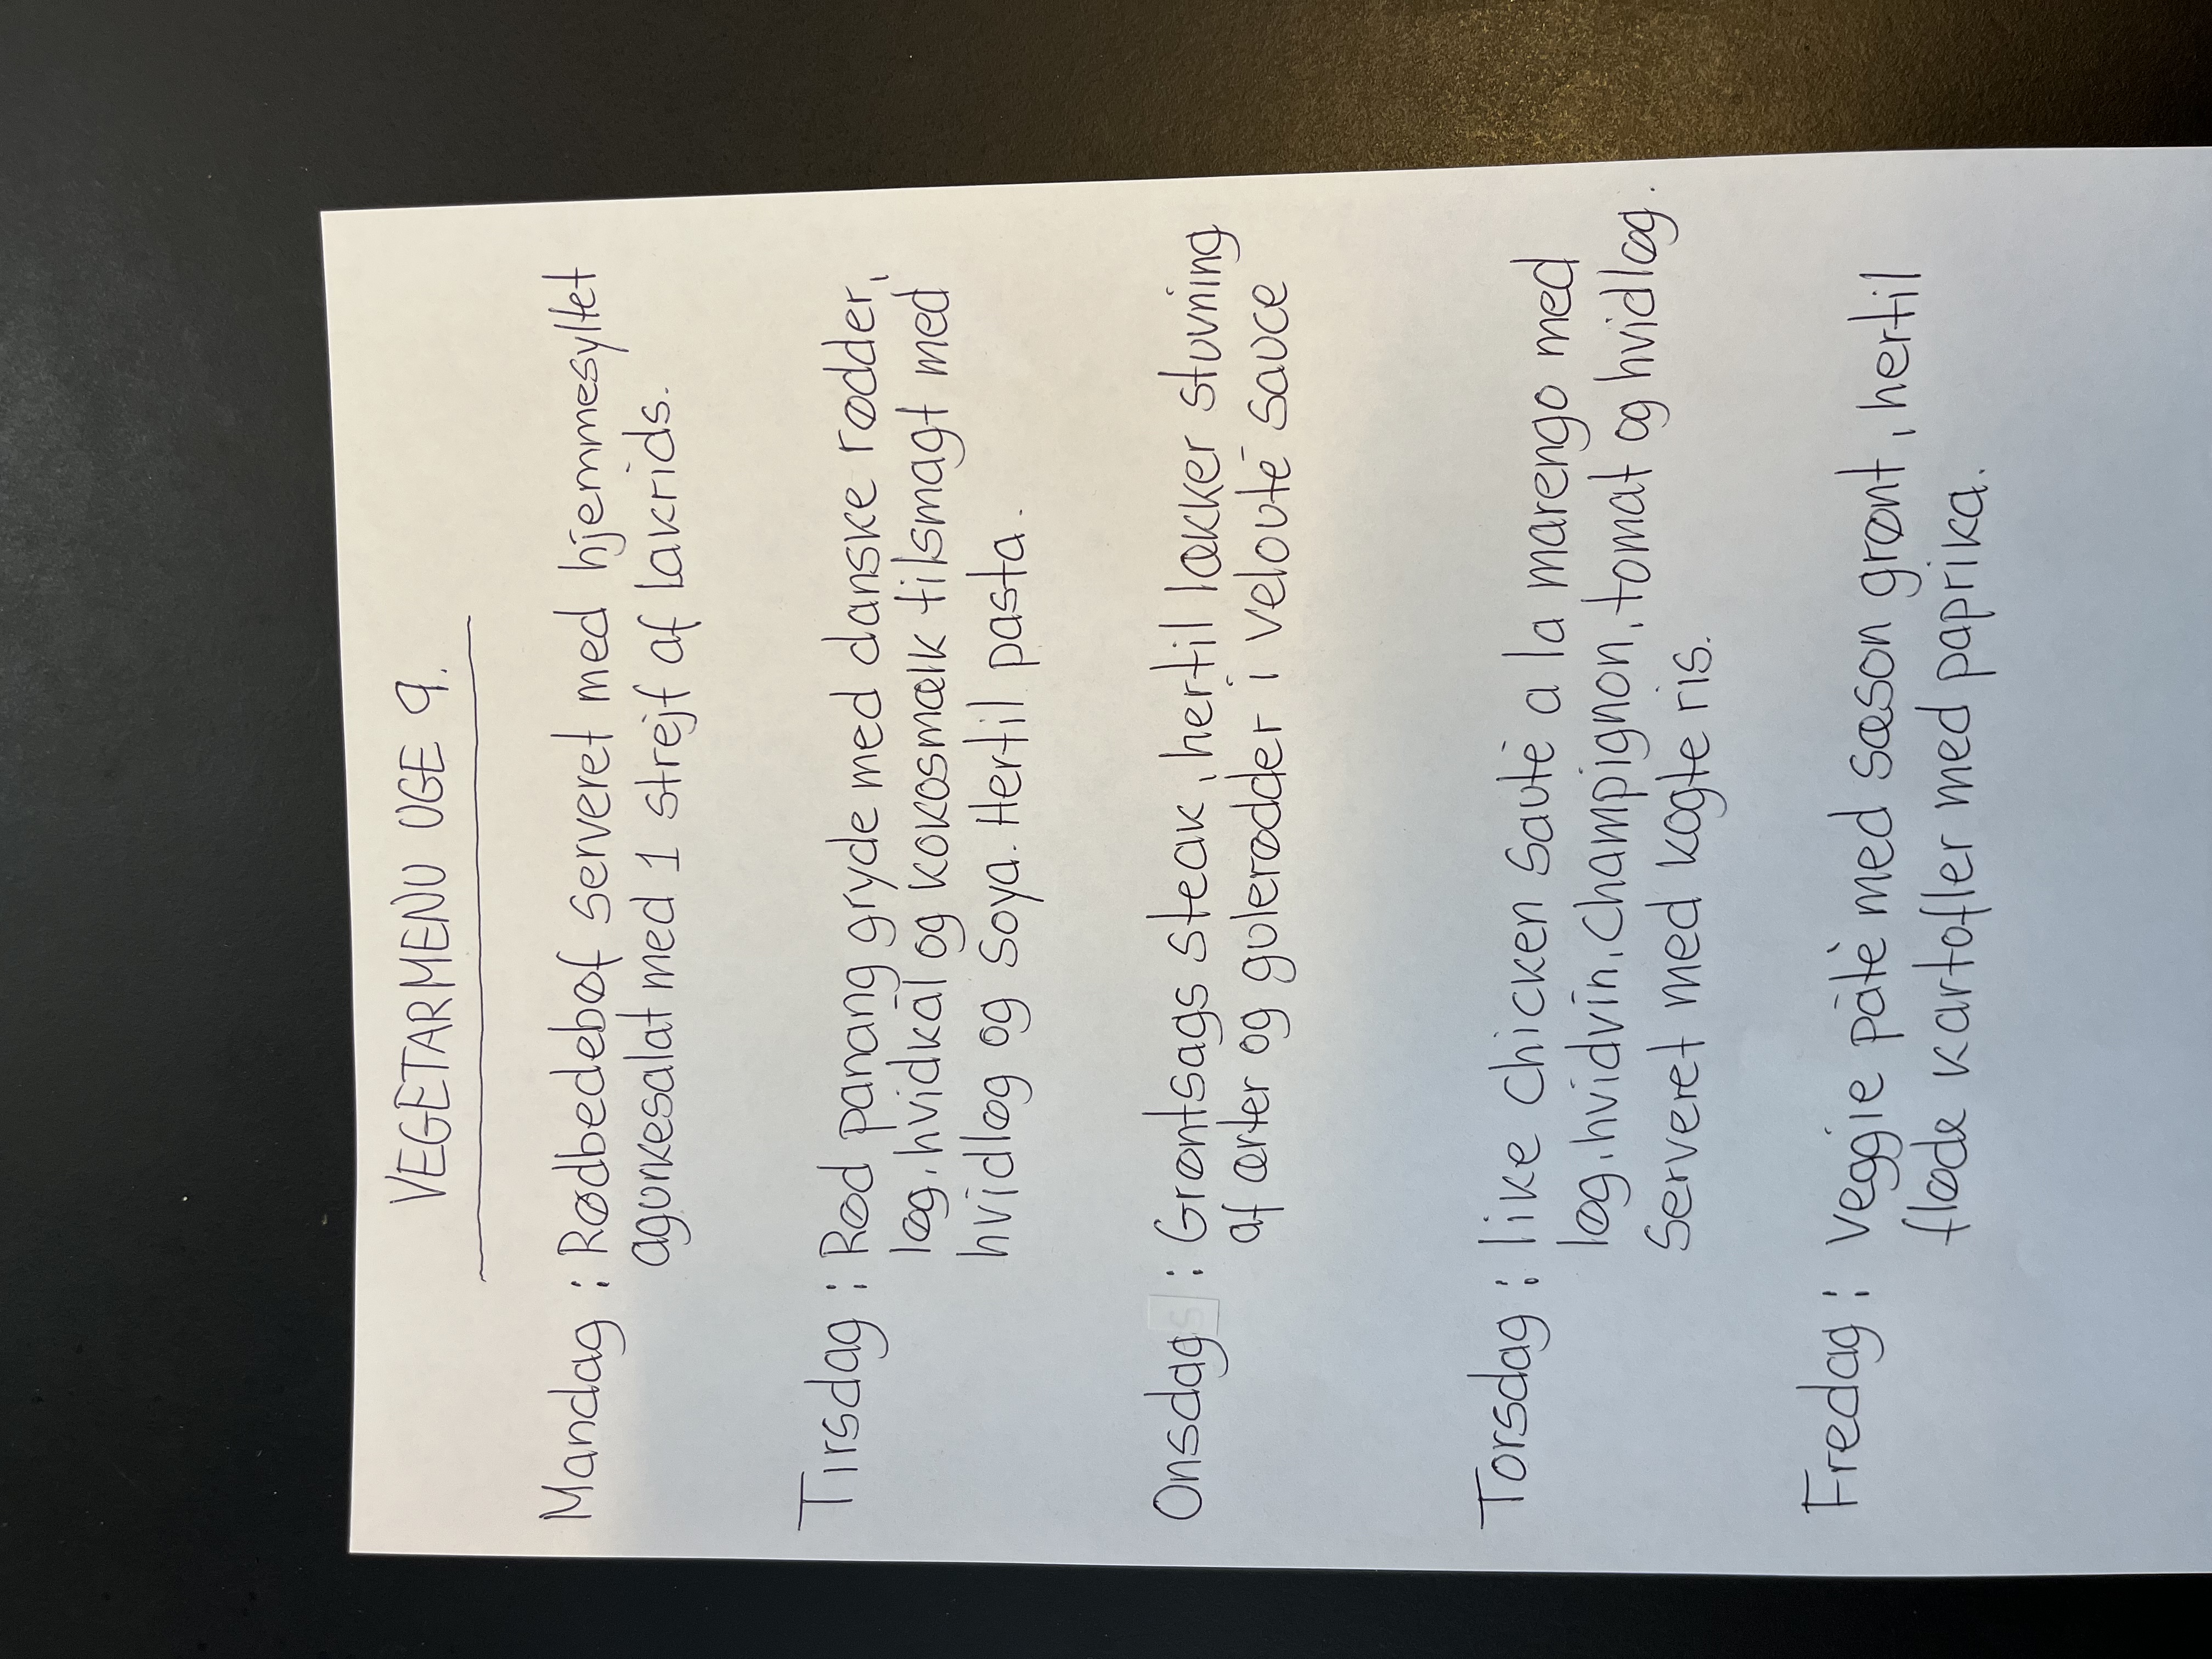 VEGETARMENU UGE 9.
Mandag : Rødbedebøf serveret med hjemmesyltet
agurkesalat med 1 strejf af lakrids.
Tirsdag : Rød panang gryde med danske rødder,
løg, hvidkål og kokosmælk tilsmagt med
hvidløg og soya. Hertil pasta.
Onsdag : Grøntsags steak, hertil lækker stuvning
af ærter og gulerødder i velouté sauce
Torsdag : like chicken sauté a la marengo med
løg, hvidvin, champignon, tomat og hvidløg.
Serveret med kogte ris.
Fredag : Veggie pâté med sæson grønt, hertil
fløde kartofler med paprika.